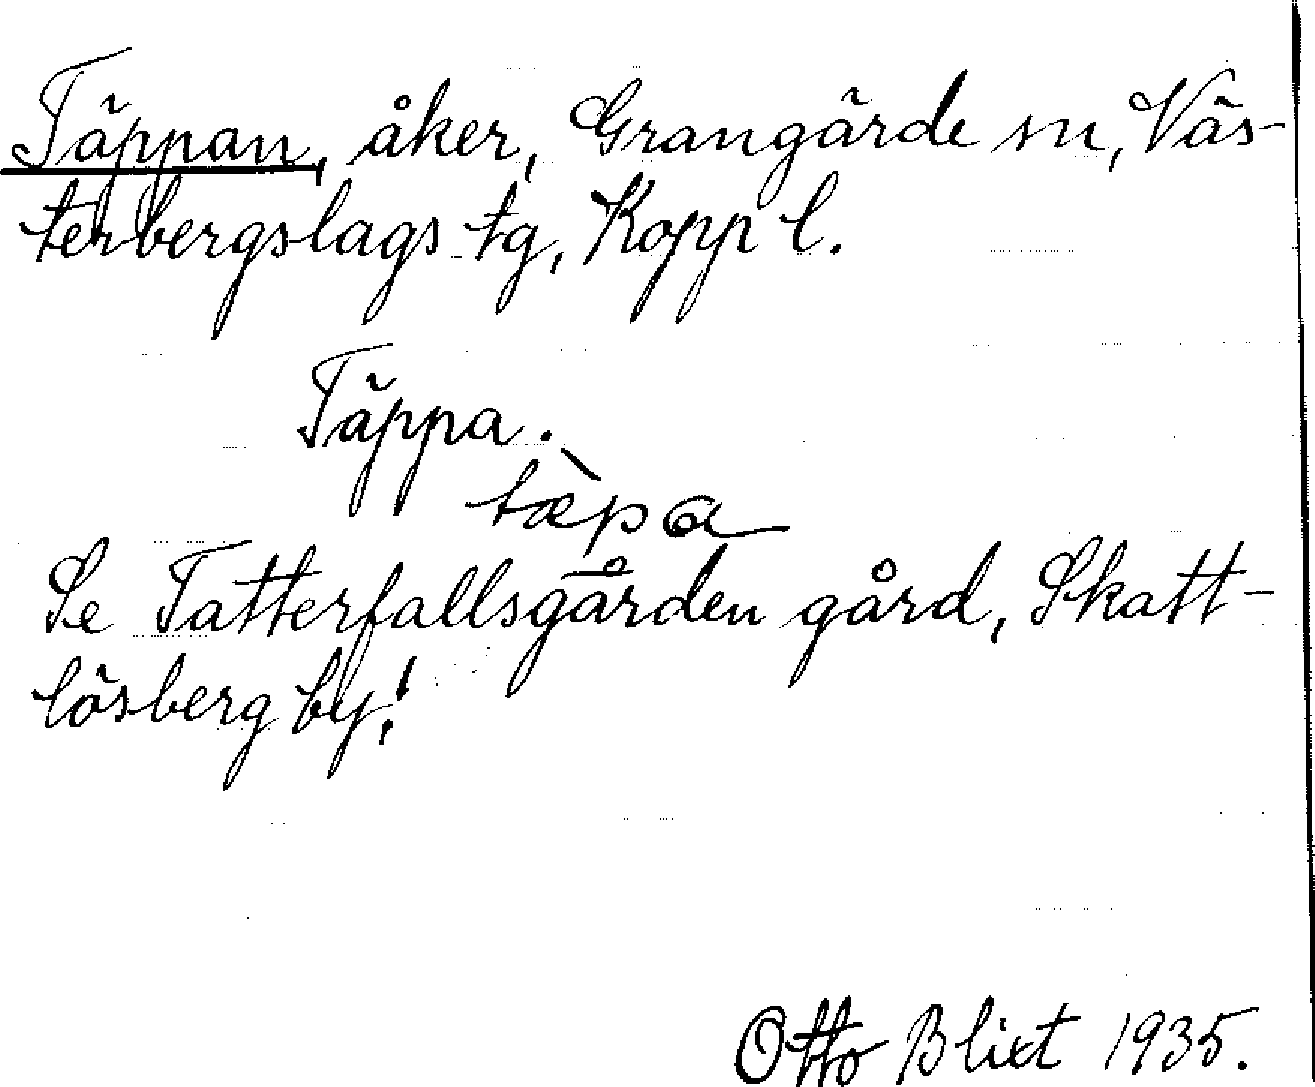 Täppan, åker, Grangärde sn, Väs-
terbergslags tg, Kopp l.
Täppa.
tæ̀pa
Se Tatterfallsgården gård, Skatt-
lösberg by!
Otto Blixt 1935.